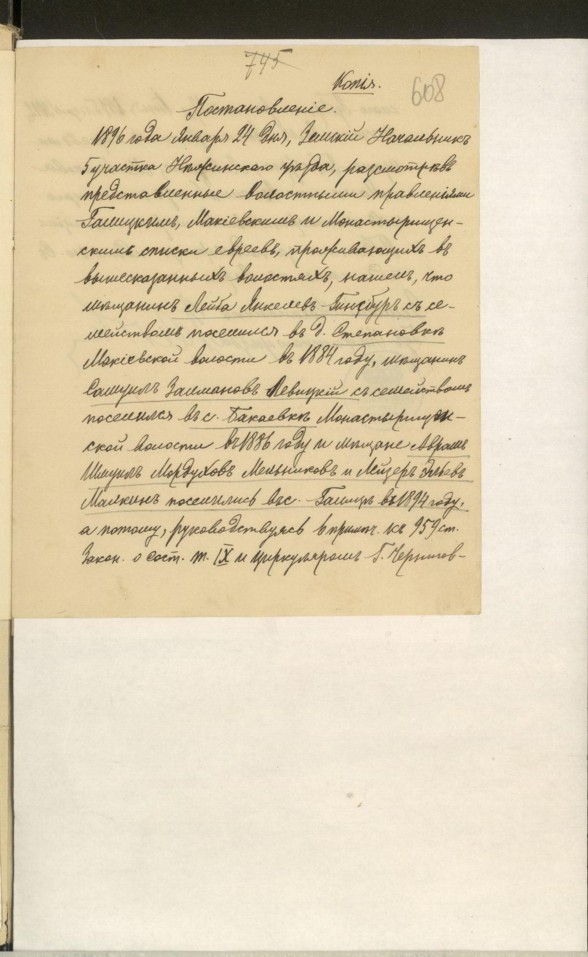 745
Копія.
608
Постановленіе.
1896 года Января 24 дня, Земскій Начальникъ
5 участка Нѣжинскаго уѣзда, разсмотрѣвъ
представленные волостными правленіями
Галицкимъ, Макіевскимъ и Монастырищен-
скимъ списки евреевъ, проживающихъ въ
вышесказанныхъ волостяхъ, нашелъ, что
мѣщанинъ Лейба Янкелевъ Гинсбургъ съ се-
мействомъ поселился въ д. Степановкѣ
Макіевской волости въ 1884 году, мѣщанинъ
Самуилъ Залмановъ Левицкій съ семействомъ
поселился въ с. Бакаевкѣ Монастырищен-
ской волости въ 1886 году и мѣщане Аврамъ
Шмуилъ Мордуховъ Мельниковъ и Лейзеръ
Малкинъ поселились въ с. Галицѣ въ 1894 году,
а потому, руководствуясь 6 примѣч. къ 959 ст.
Закон. о сост. т. IX и циркуляромъ Г. Чернигов-